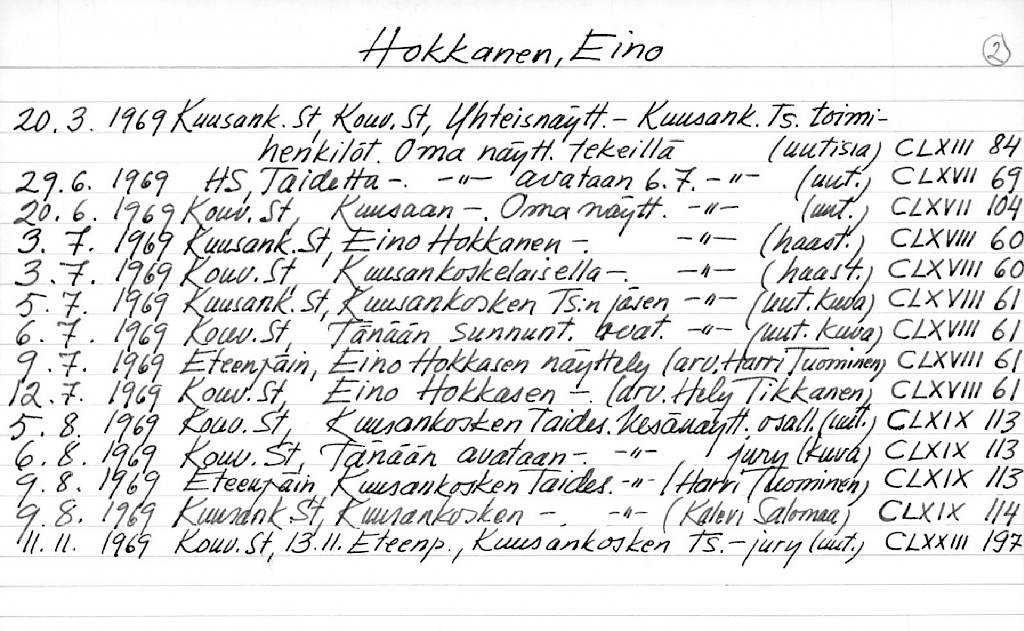 Hokkanen, Eino 2
20. 3. 1969 Kuusank. St, Kouv. St, Yhteisnäytt. - Kuusank. Ts. toimi-
henkilöt. Oma näytt. tekeillä (uutisia) CLXIII 84
29. 6. 1969 HS, Taidetta -. -"- avataan 6. 7. -"- (uut.) CLXVII 69
20. 6. 1969 Kouv. St, Kuusaan -. Oma näytt. -"- (uut.) CLXVII 104
3. 7. 1969 Kuusank. St, Eino Hokkanen -. -"- (haast.) CLXVIII 60
3. 7. 1969 Kouv. St, Kuusankoskelaisella -. -"- (haast.) CLXVIII 60
5. 7. 1969 Kuusank. St, Kuusankosken Ts:n jäsen -"- (uut. kuva) CLXVIII 61
6. 7. 1969 Kouv. St, Tänään sunnunt. avat. -"- (uut. kuva) CLXVIII 61
9. 7. 1969 Eteenpäin, Eino Hokkasen näyttely (arv. Harri Tuominen) CLXVIII 61
12. 7. 1969 Kouv. St, Eino Hokkasen -. (arv. Hely Tikkanen) CLXVIII 61
5. 8. 1969 Kouv. St, Kuusankosken Taides. kesänäytt. osall. (uut.) CLXIX 113
6. 8. 1969 Kouv. St, Tänään avataan -. -"- jury (kuva) CLXIX 113
9. 8. 1969 Eteenpäin, Kuusankosken Taides. -"- (Harri Tuominen) CLXIX 113
9. 8. 1969 Kuusank St, Kuusankosken -. -"- (Kalevi Salomaa) CLXIX 114
11. 11. 1969 Kouv. St, 13. 11. Eteenp., Kuusankosken Ts. - jury (uut.) CLXXIII 197